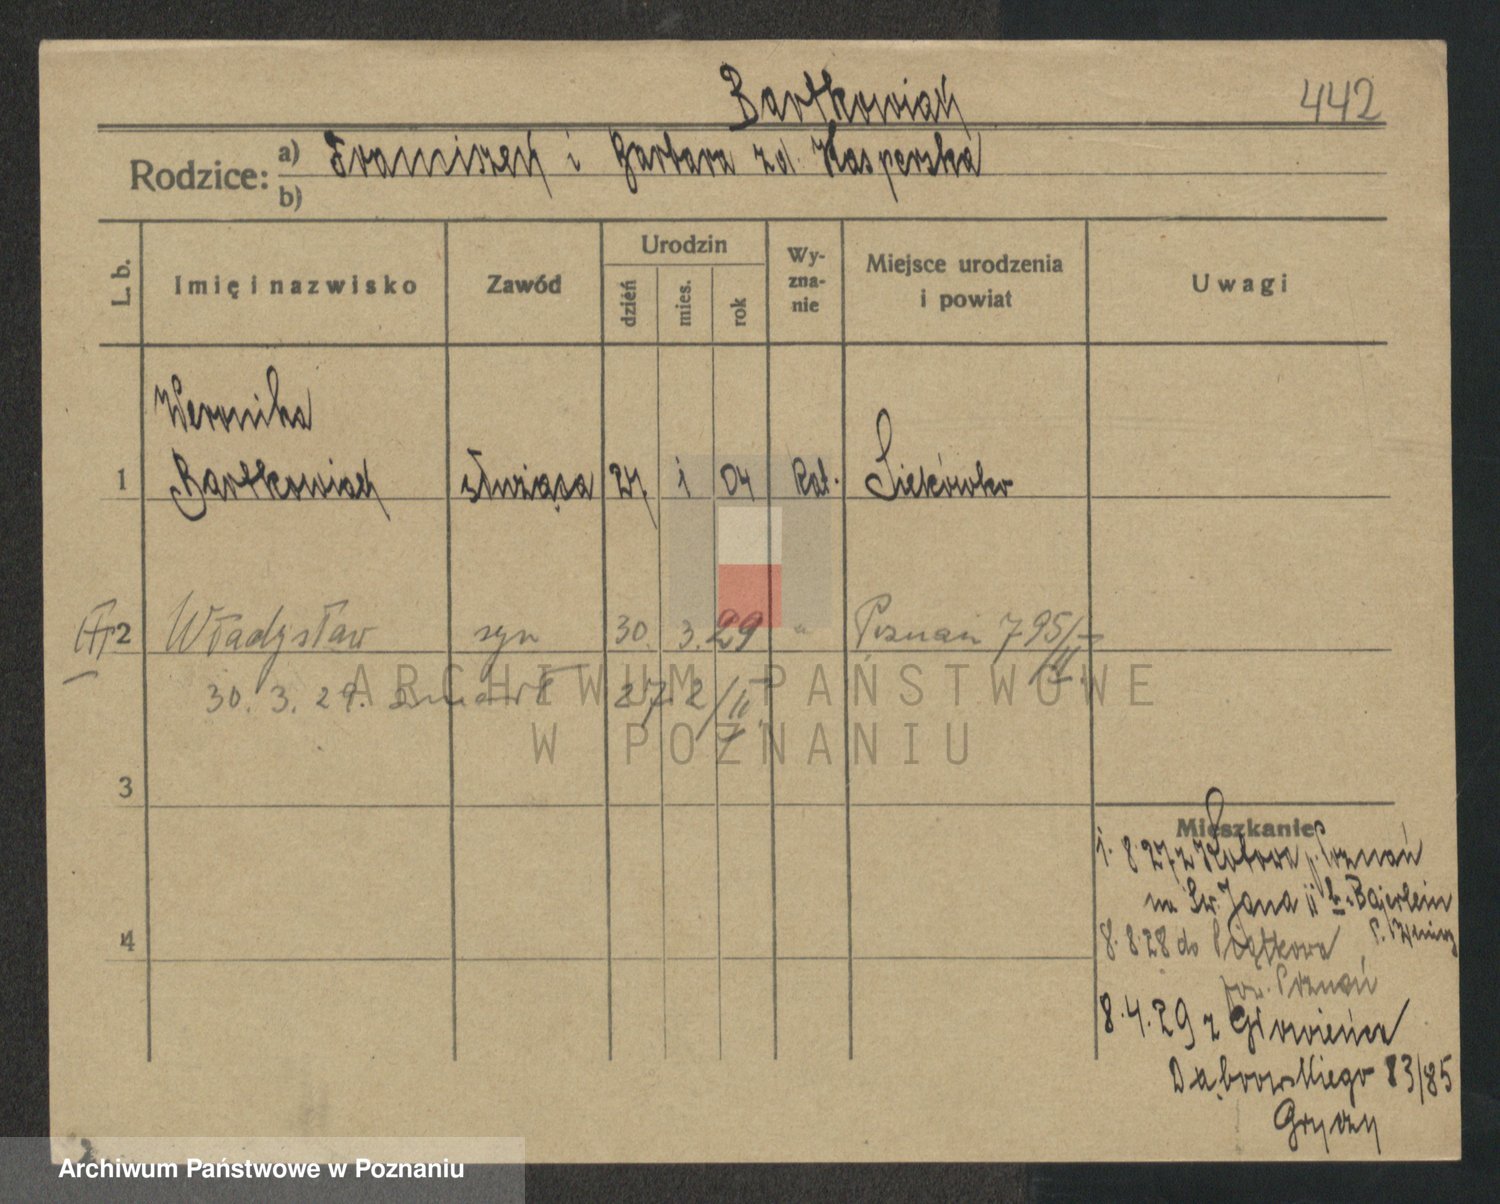 Bartkowiak
442
Rodzice: a) Franciszek i Barbara zd. Kasperska
b)
L. b.
Imię i nazwisko
Zawód
Urodzin
dzień
mies.
rok
Wy-
zna-
nie
Miejsce urodzenia
i powiat
Uwagi
Weronika
1 Bartkowiak służąca 27 i 04 Kat. Siekówko
2 Władysław syn 30. 3. 29 " Poznań 795/II
30. 3. 29. zmarł 27. 2/II
3
4
Mieszkanie
1. 8. 27 z Kotowa p. Poznań
na Św. Jana 11 b. Bajerlein
8. 8. 28 do Piątkowa
pow. Poznań
8. 4. 29 z Główieńca
Dąbrowskiego 83/85
Gryczy
ARCHIWUM PAŃSTWOWE
W POZNANIU
Archiwum Państwowe w Poznaniu